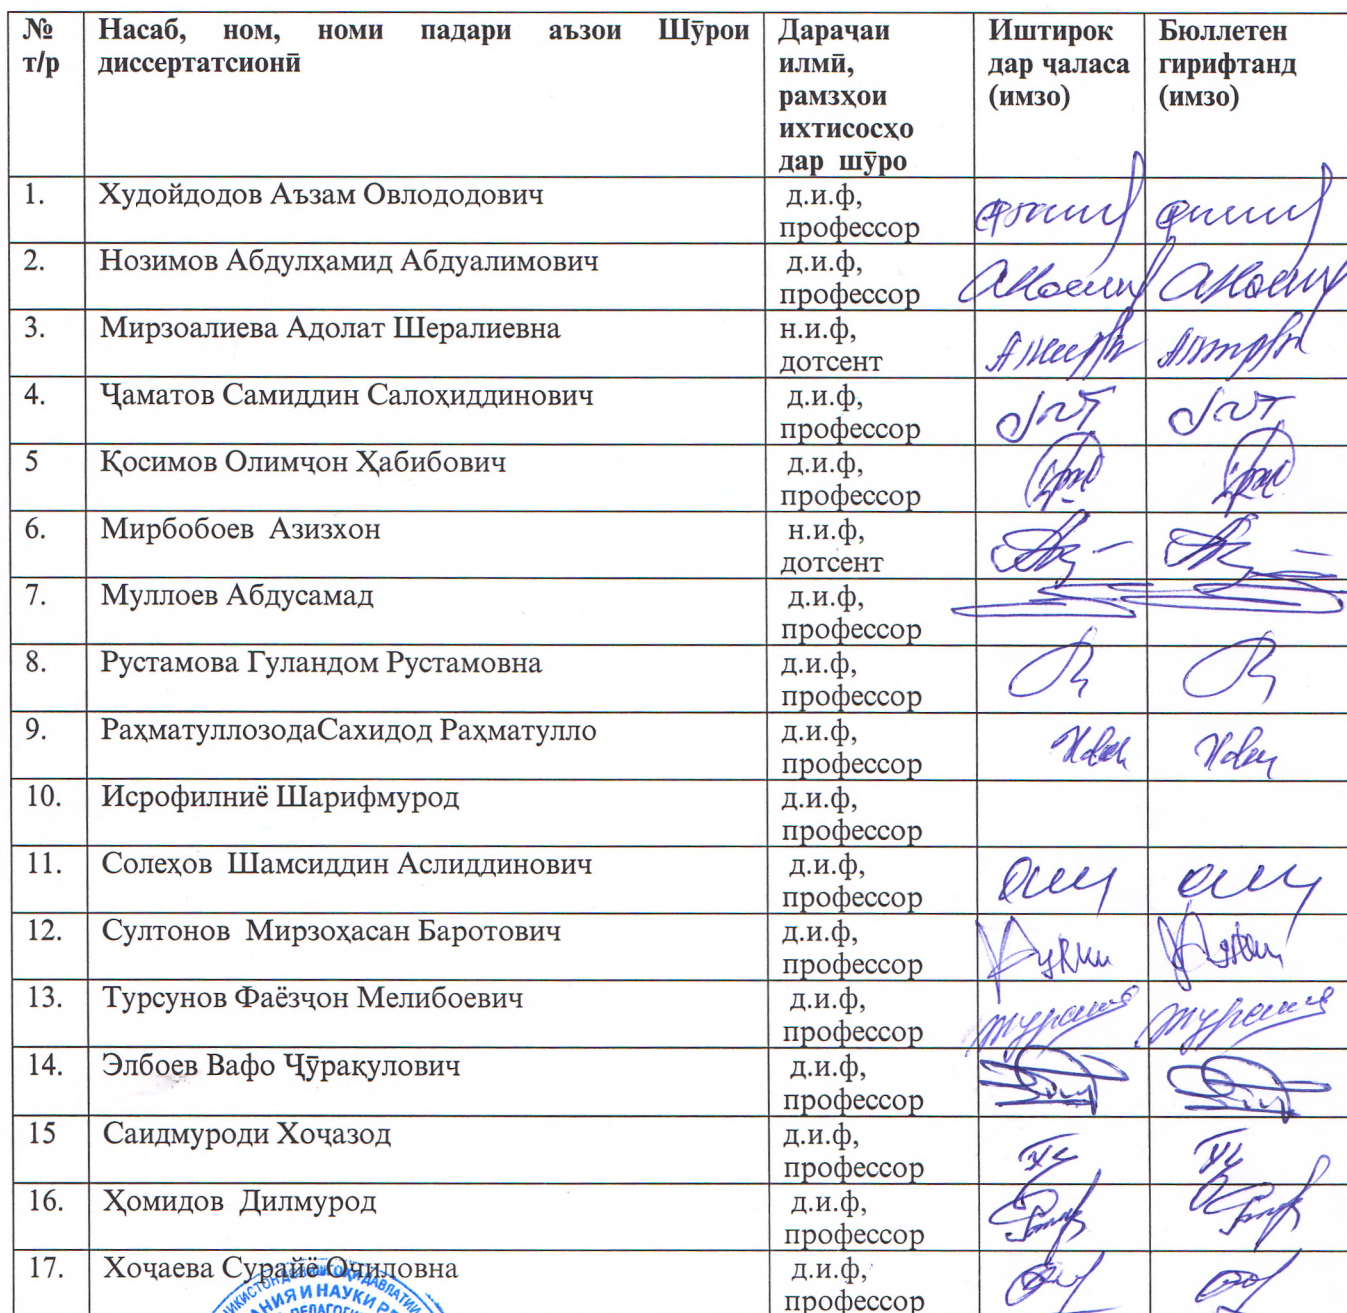 № т/р
Насаб, ном, номи падари аъзои Шӯрои диссертатсионӣ
Дараҷаи илмӣ, рамзҳои ихтисосҳо дар шӯро
Иштирок дар ҷаласа (имзо)
Бюллетен гирифтанд (имзо)
1. Худойдодов Аъзам Овлододович д.и.ф, профессор
2. Нозимов Абдулҳамид Абдуалимович д.и.ф, профессор
3. Мирзоалиева Адолат Шералиевна н.и.ф, дотсент
4. Ҷаматов Самиддин Салоҳиддинович д.и.ф, профессор
5 Қосимов Олимҷон Ҳабибович д.и.ф, профессор
6. Мирбобоев Азизхон н.и.ф, дотсент
7. Муллоев Абдусамад д.и.ф, профессор
8. Рустамова Гуландом Рустамовна д.и.ф, профессор
9. РаҳматуллозодаСахидод Раҳматулло д.и.ф, профессор
10. Исрофилниё Шарифмурод д.и.ф, профессор
11. Солеҳов Шамсиддин Аслиддинович д.и.ф, профессор
12. Султонов Мирзоҳасан Баротович д.и.ф, профессор
13. Турсунов Фаёзҷон Мелибоевич д.и.ф, профессор
14. Элбоев Вафо Ҷӯрақулович д.и.ф, профессор
15 Саидмуроди Хоҷазод д.и.ф, профессор
16. Ҳомидов Дилмурод д.и.ф, профессор
17. Хоҷаева Сурайё Очиловна д.и.ф, профессор